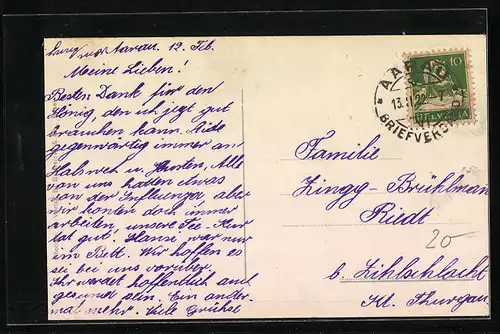 Aarau. 12. Feb.
Meine Lieben!
Besten Dank für den
Hönig, den ich jezt gut
brauchen kann. Leide
gegenwärtig immer an
Halsweh u. Husten, Alle
von uns haben etwas
von der Influenza, aber
wir konten doch immer
arbeiten, unsere Tee-Kur
tat gut. Hansi war nur
im Bett. Wir hoffen es
sei bei uns vorüber.
Ihr werdet hoffentlich auch
gesund sein. Ein ander-
mal mehr. Viele Grüsse
AARAU
13.II.22
BRIEFVERSAND
10
HELVETIA
Familie
Zingg-Brühlman
Riedt
b. Zihlschlacht
Kt. Thurgau.
20